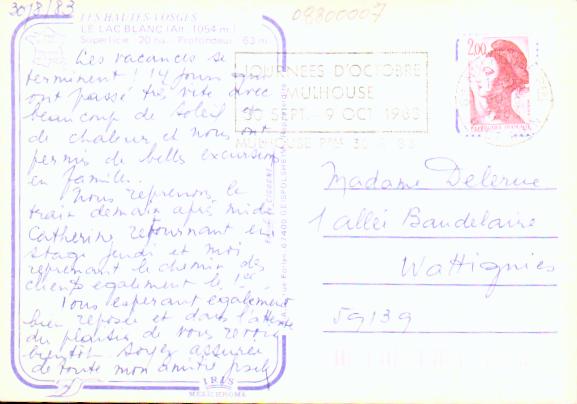 30/8/83
09800007
LES HAUTES-VOSGES
LE LAC BLANC (Alt. 1054 m.)
Superficie 20 ha. Profondeur 63 m.
Les vacances se
terminent ! 14 jours qui
ont passé très vite avec
beaucoup de soleil et
de chaleur et nous ont
permis de belles excursions
en famille.
Nous reprenons le
train demain après midi
Catherine retournant en
stage jeudi et moi
reprenant le chemin des
clients également le 1er.
Vous espérant également
bien reposée et dans l'attente
du plaisir de vous revoir
bientôt soyez assurée
de toute mon amitié
IRIS
MEXICHROME
JOURNEES D'OCTOBRE
MULHOUSE
30 SEPT. - 9 OCT 1983
MULHOUSE
2,00
Madame Delerue
1 allée Baudelaire
Wattignies
59139